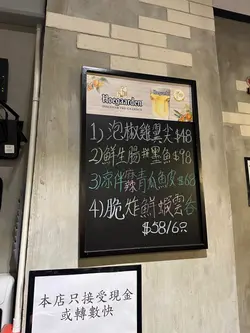 Hoegaarden
1) 泡椒雞翼尖 $48
2) 鮮生腸拼墨魚 $98
3) 涼拌麻辣青瓜魚皮 $68
4) 脆炸鮮蝦雲吞
$58/6只
本店只接受現金
或轉數快